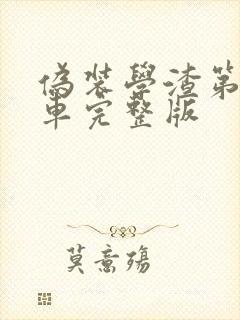 偽装學渣第
車完整版
莫意殤